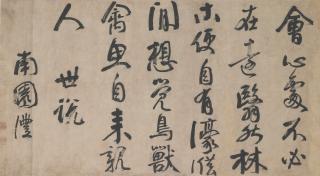 會心處不必
在遠翳然林
木便自有濠濮
間想覺鳥獸
禽魚自來親
人 世說
南園灃